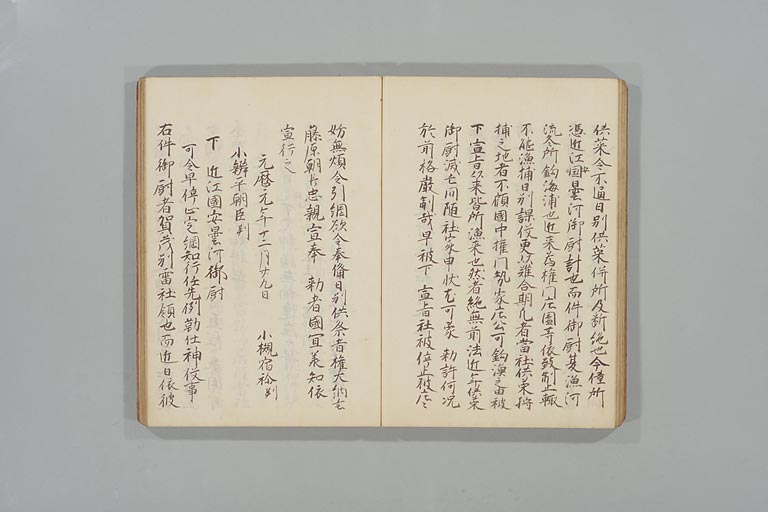 供菜令不通日別供菜併所及断絶也今僅所
憑近江国安曇河御厨計也而件御厨夏漁河
流冬所釣海浦也近来為権門庄園等依致制止輙
不能漁捕日別課役更以難合期凡者当社供菜狩
捕之地者不顧国中権門勢家庄公可釣漁之由被
下宣旨以来皆所漁来也然者絶無前法近年供菜
御厨滅亡問随社家申状尤可蒙 勅許何况
於前格厳制哉早被下 宣旨社被停止彼庄々
妨無煩令引網欲令奉備日別供祭者権大納言
藤原朝臣忠親宣奉 勅者國宜羕知依
宣行之
元暦元年十二月廿九日 小槻宿祢判
小辨平朝臣判
下 近江國安曇河御厨
可令早停止定綱知行任先例勤仕神役事
右件御厨者賀茂別雷社領也而近日依彼